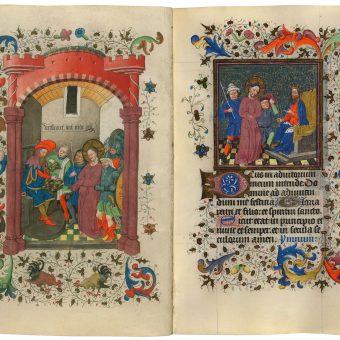 Deus in adiutorium
meum intende Do
mine ad adiuuan
dum me festina Gloria
patri et filio: et spiritui sancto.
Sicut erat in principio et
nunc et semper: et in secula se
culorum amen.